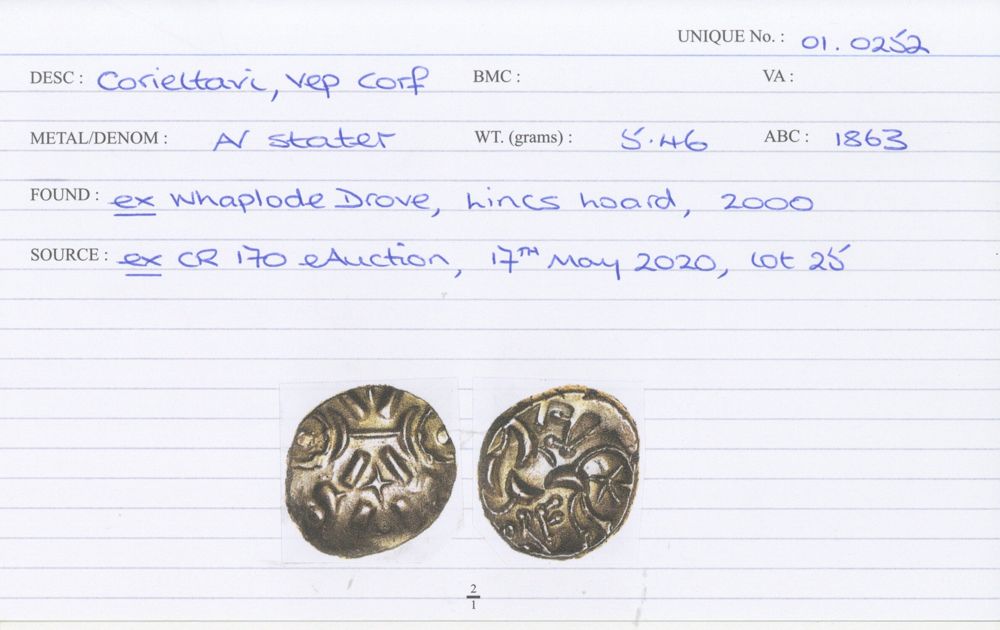 UNIQUE No. : 01.0252
DESC : Corieltavi, Vep Corf BMC : VA :
METAL/DENOM : AV stater WT. (grams) : 5.46 ABC : 1863
FOUND : ex Whaplode Drove, Lincs hoard, 2000
SOURCE : ex CR 170 eAuction, 17TH May 2020, Lot 25
2
1